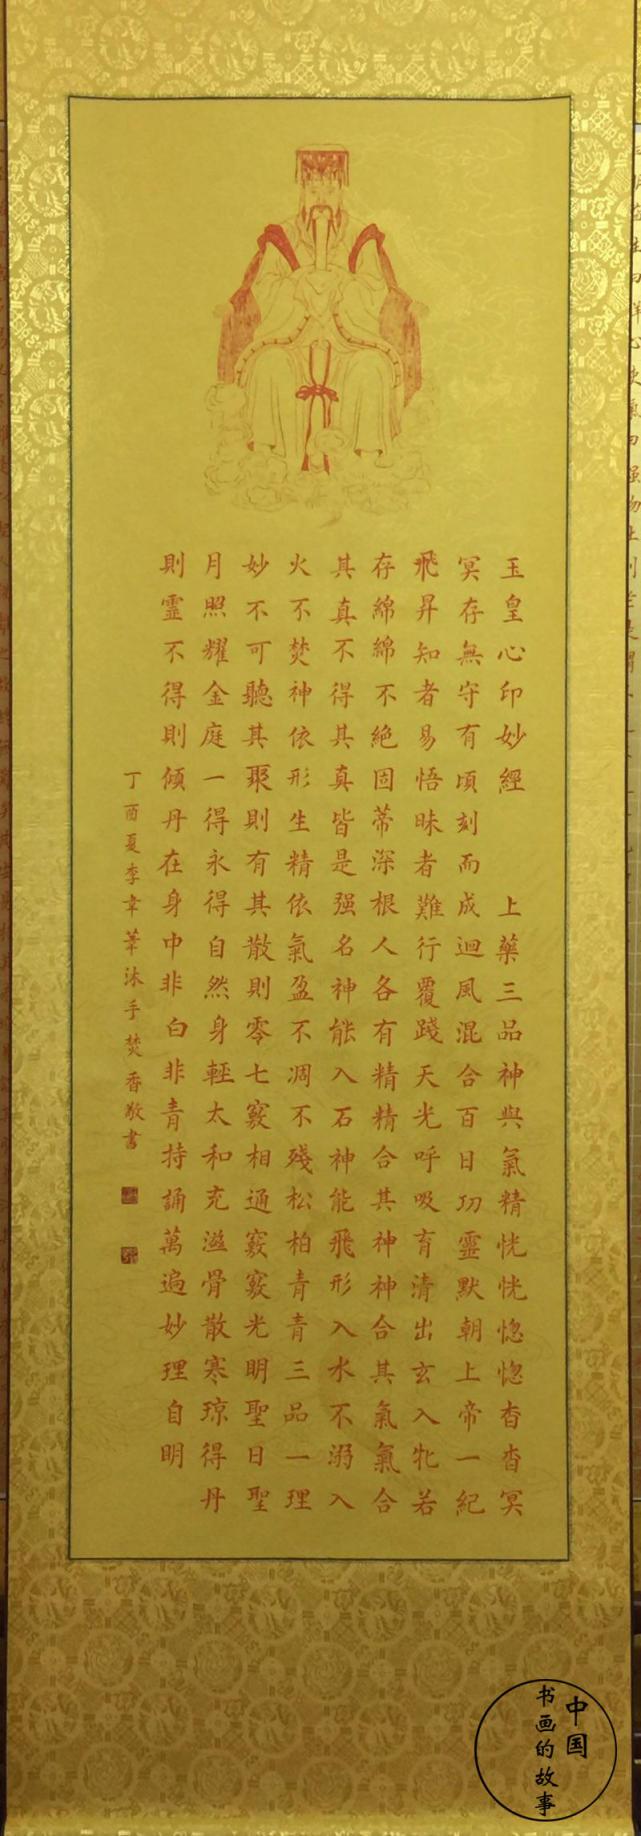 玉皇心印妙經 上藥三品神與氣精恍恍惚惚杳杳冥
冥存無守有頃刻而成迴風混合百日功靈默朝上帝一紀
飛昇知者易悟昧者難行覆踐天光呼吸育清出玄入牝若
存綿綿不絕固蒂深根人各有精精合其神神合其氣氣合
其真不得其真皆是强名神能入石神能飛形入水不溺入
火不焚神依形生精依氣盈不凋不殘松柏青青三品一理
妙不可聽其聚則有其散則零七竅相通竅竅光明聖日聖
月照耀金庭一得永得自然身輕太和充滋骨散寒琼得丹
則靈不得則傾丹在身中非白非青持誦萬遍妙理自明
丁酉夏李韋葦沐手焚香敬書
中国
书画的故事